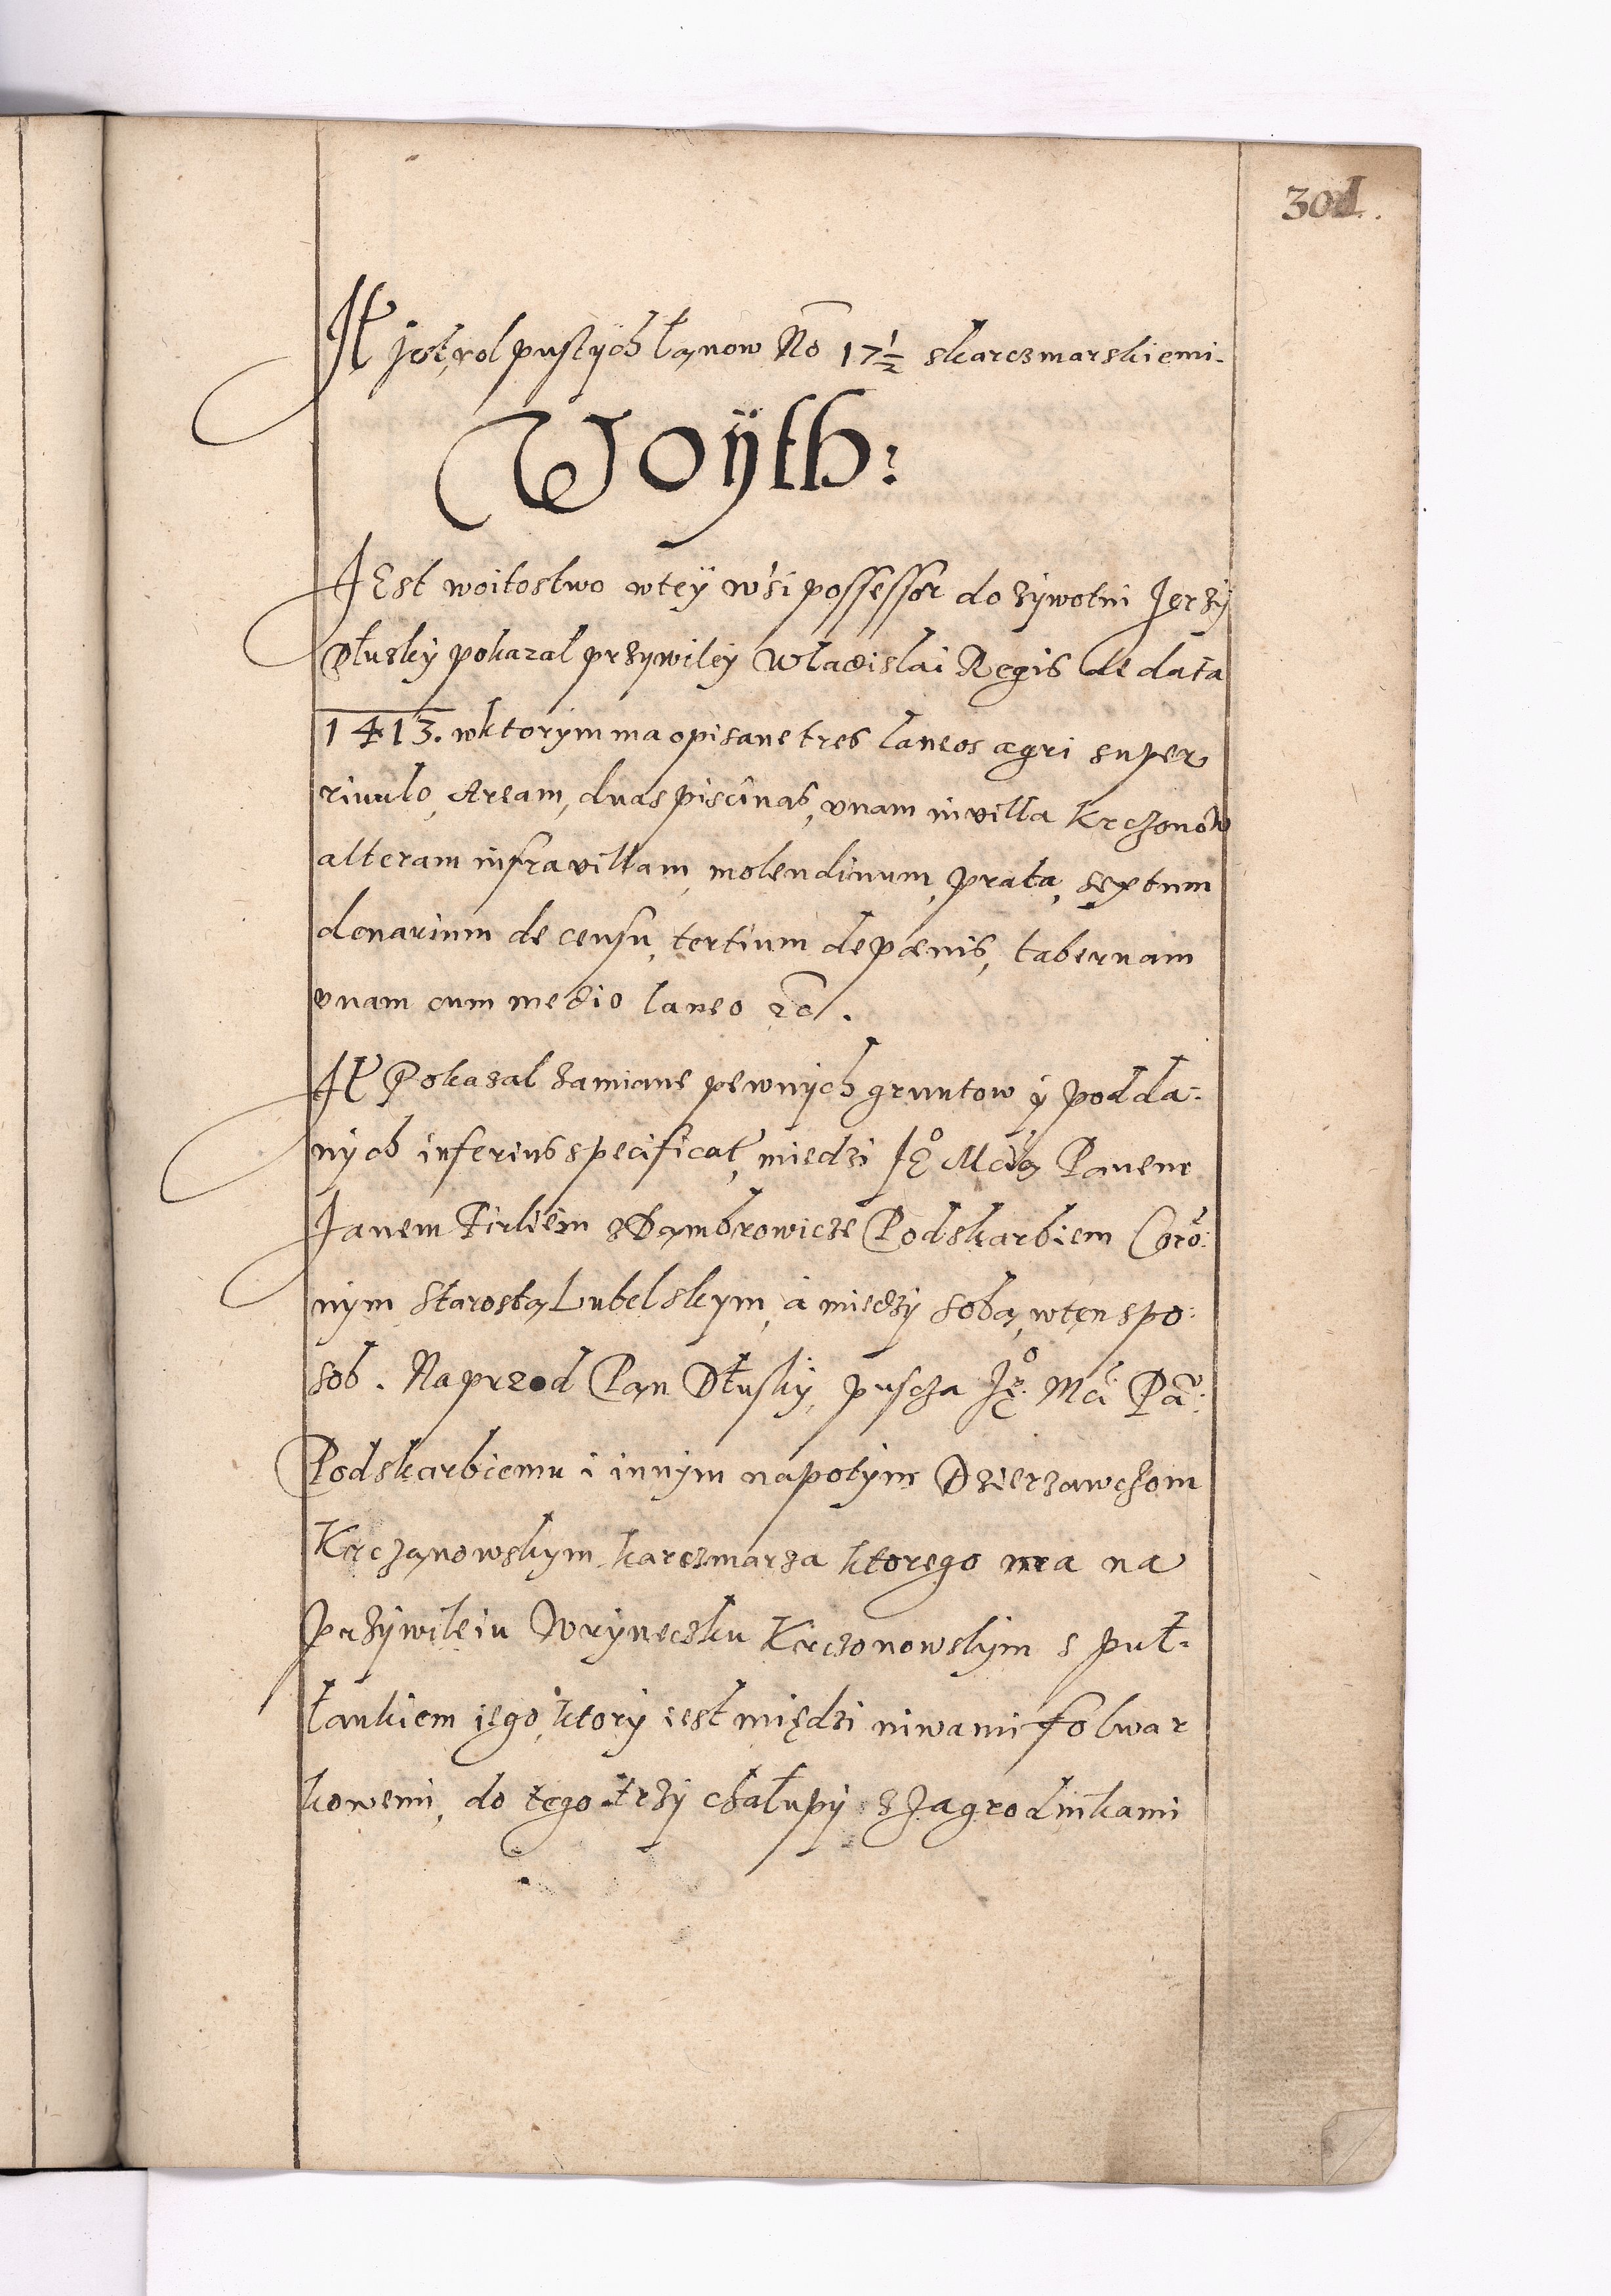 301.
It jest rol pustÿch łanow No 17 1/2 skarczmarskiemi.
Woÿth:
JEst woitostwo wteÿ wśi possessor dozÿwotni Jerzÿ
Dłuskÿ pokazał przÿwileÿ Wladislai Regis de data
1413. wktorÿm ma opisane tres laneos agri super
riuulo, Aream, duas piscinas, vnam in villa Krczonow
alteram infra villam, molendinum, prata, sextum
denarium de censu, tertium de pœnis, tabernam
vnam cum medio laneo
It Pokazal zamiane pewnÿch gruntow ÿ podda:
nÿch inferius specificat, miedzi Jeº Mcią Panem
Janem Firliem z Dambrowicze Podskarbiem Coro:
nÿm Starostą Lubelskÿm, á miedzÿ sobą, wten spo:
sob. Naprzod Pan Dłuskÿ, puscza Jeº Mci Pa:
Podskarbiemu i innÿm napotÿm Dzierzawczom
Krczanowskÿm karczmarza ktorego ma na
przÿwileiu Wrÿneczku Krczonowskÿm s puł-
łankiem iego, ktorÿ iest międzi niwami folwar
kowemi, do tego trzÿ chałupÿ z zagrodnikami